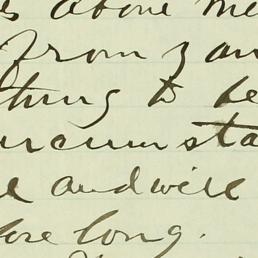 s above me
from y an
thing to be
ircumsta
e and will
fore long.